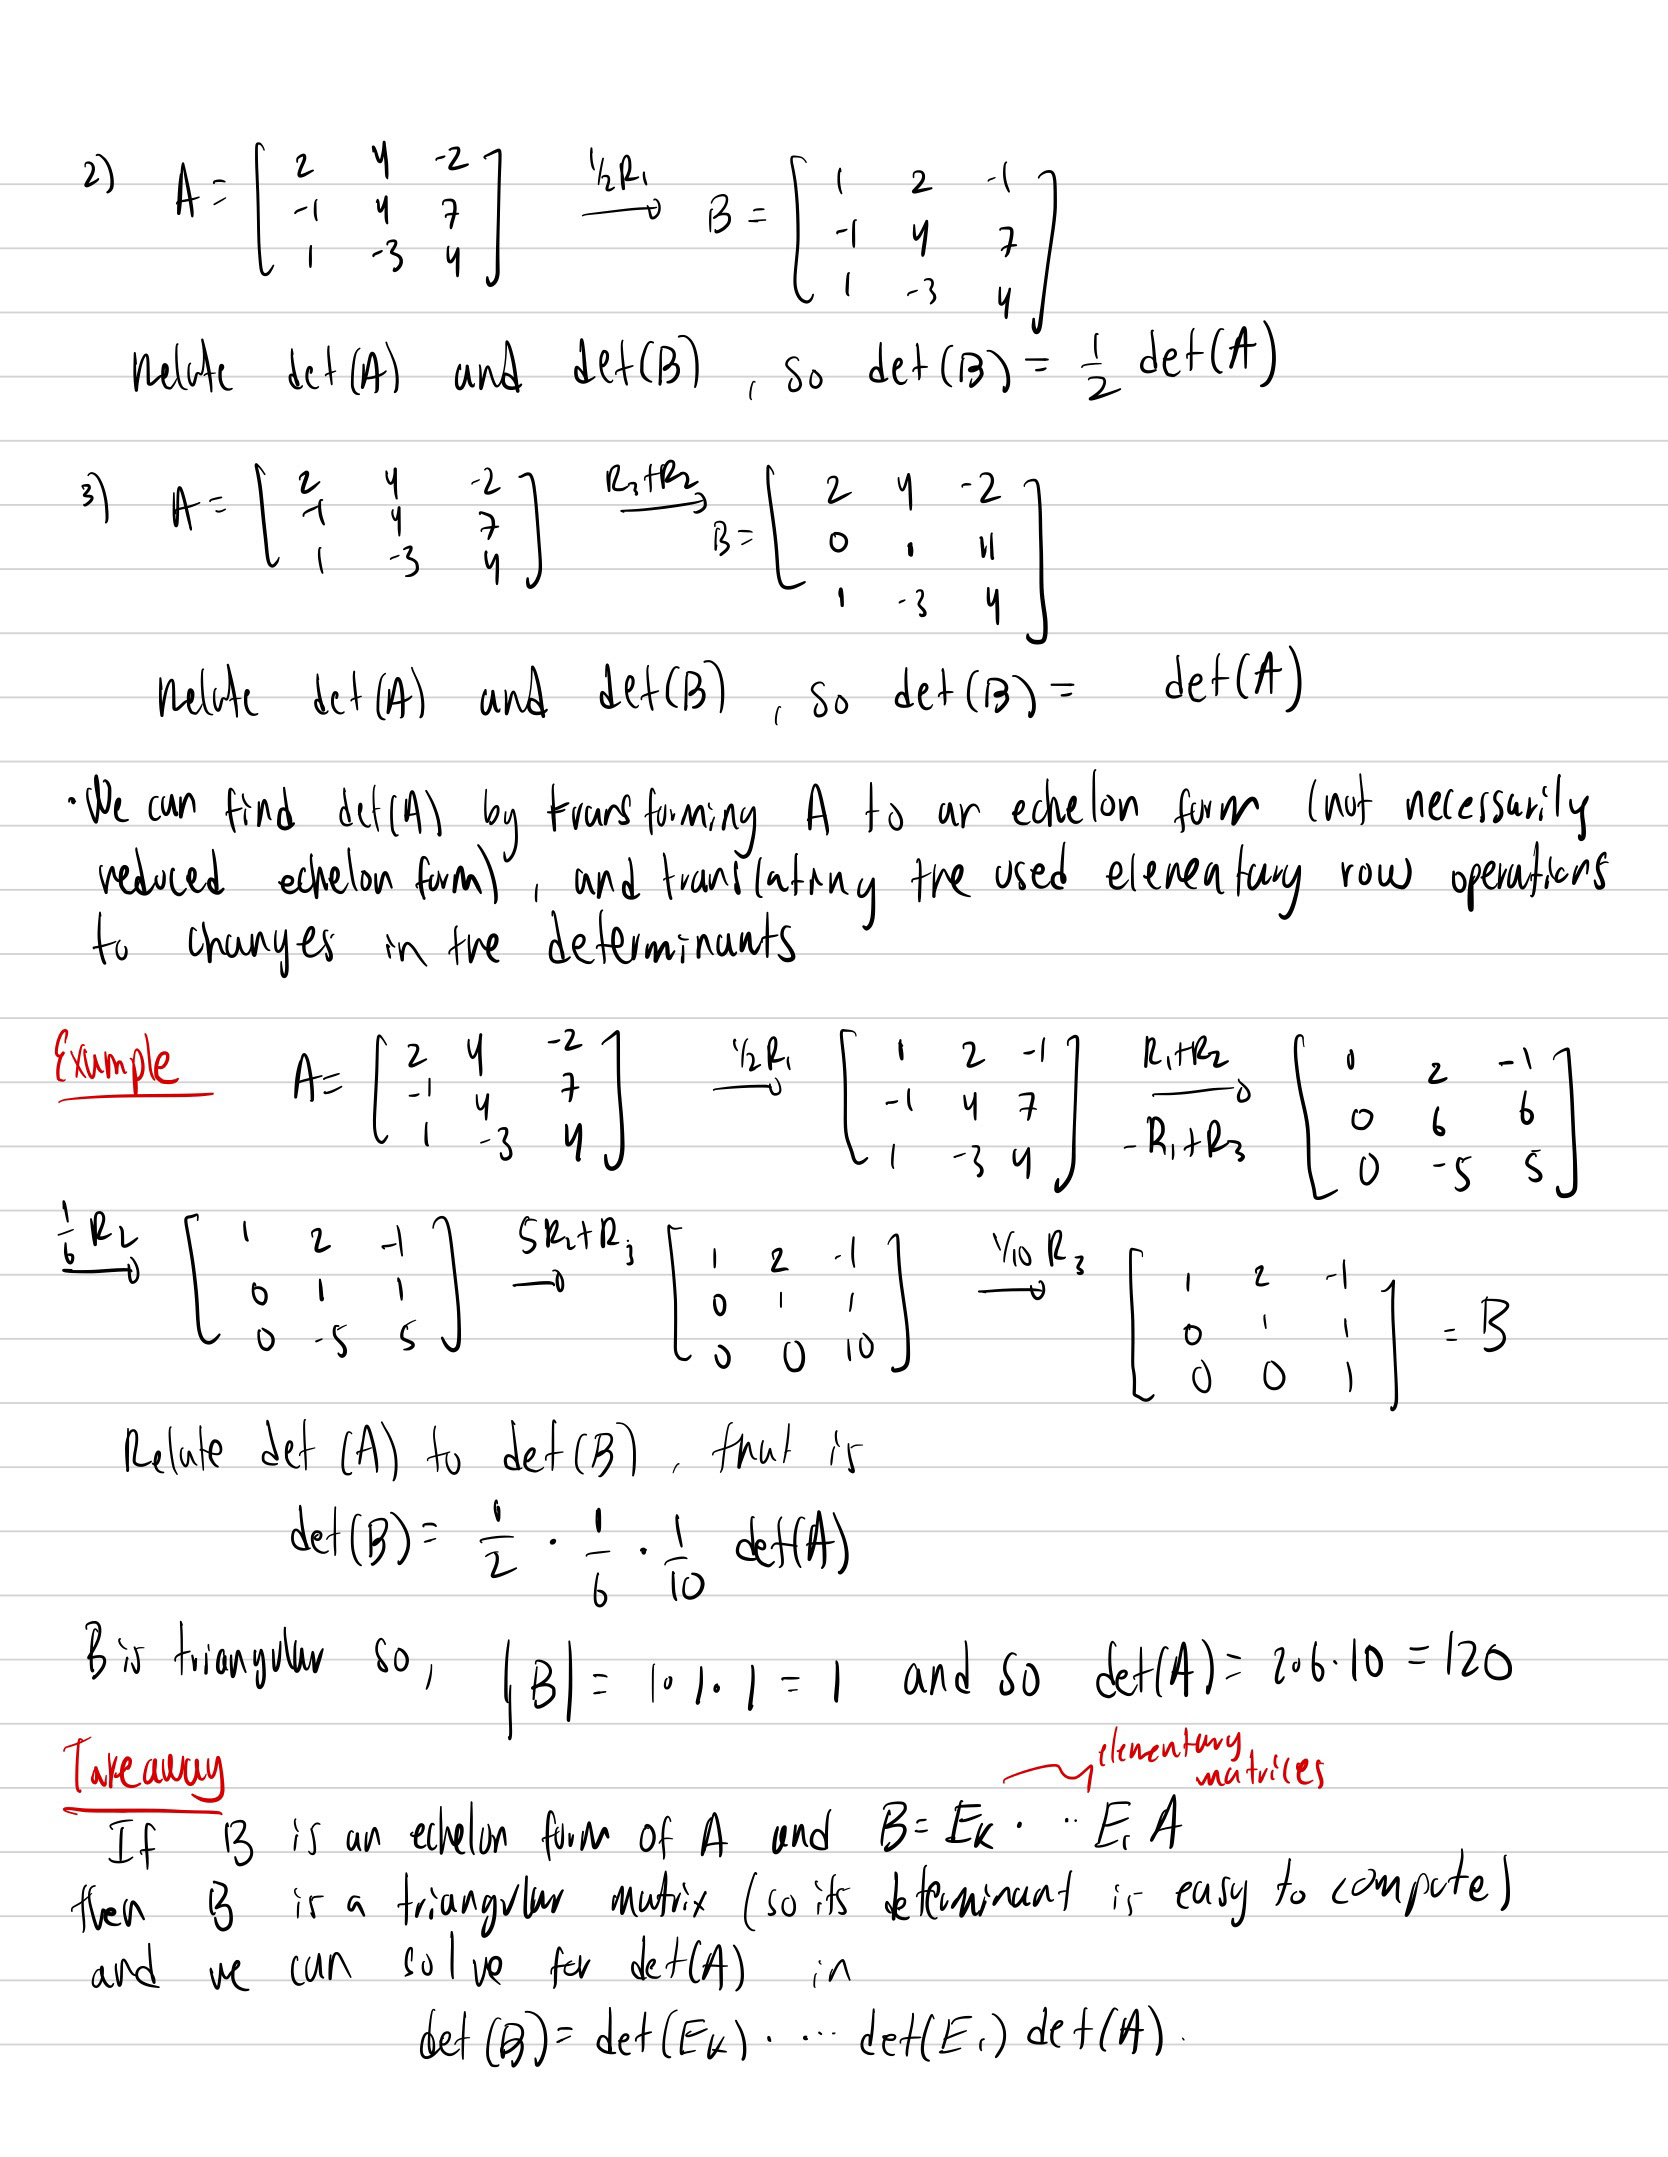 2) A = [ 2 4 -2 ; -1 4 7 ; 1 -3 4 ] ½R₁ → B = [ 1 2 -1 ; -1 4 7 ; 1 -3 4 ]
Relate det(A) and det(B), so det(B) = 1/2 det(A)
3) A = [ 2 4 -2 ; -1 4 7 ; 1 -3 4 ] R₃+R₂ → B = [ 2 4 -2 ; 0 1 11 ; 1 -3 4 ]
Relate det(A) and det(B), so det(B) = det(A)
· We can find det(A) by transforming A to an echelon form (not necessarily
reduced echelon form), and translating the used elementary row operations
to changes in the determinants
Example A = [ 2 4 -2 ; -1 4 7 ; 1 -3 4 ] ½R₁ → [ 1 2 -1 ; -1 4 7 ; 1 -3 4 ] R₁+R₂ → -R₁+R₃ [ 1 2 -1 ; 0 6 6 ; 0 -5 5 ]
1/6 R₂ → [ 1 2 -1 ; 0 1 1 ; 0 -5 5 ] 5R₂+R₃ → [ 1 2 -1 ; 0 1 1 ; 0 0 10 ] 1/10 R₃ → [ 1 2 -1 ; 0 1 1 ; 0 0 1 ] = B
Relate det(A) to det(B), that is
det(B) = 1/2 · 1/6 · 1/10 det(A)
B is triangular so, |B| = 1·1·1 = 1 and so det(A) = 2·6·10 = 120
Takeaway
elementary
matrices
If B is an echelon form of A and B = Eₖ · ·· E₁ A
then B is a triangular matrix (so its determinant is easy to compute)
and we can solve for det(A) in
det(B) = det(Eₖ) · ··· det(E₁) det(A).